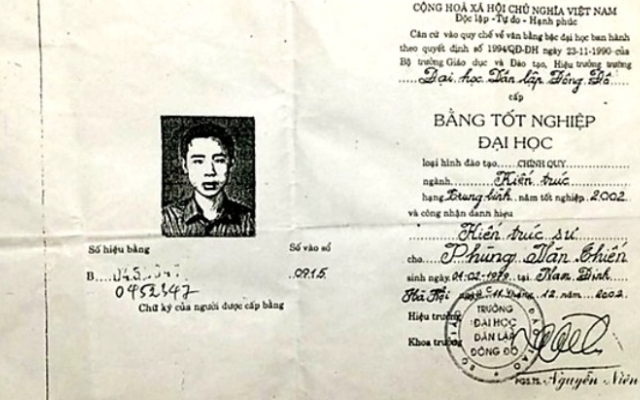 CỘNG HOÀ XÃ HỘI CHỦ NGHĨA VIỆT NAM
Độc lập - Tự do - Hạnh phúc
Căn cứ vào quy chế về văn bằng bậc đại học ban hành
theo quyết định số 1994/QĐ-ĐH ngày 23-11-1990 của
Bộ trưởng Giáo dục và Đào tạo, Hiệu trưởng trường
Đại học Dân lập Đông Đô
cấp
BẰNG TỐT NGHIỆP
ĐẠI HỌC
loại hình đào tạo CHÍNH QUY
ngành Kiến trúc
hạng Trung bình năm tốt nghiệp 2002
và công nhận danh hiệu
Kiến trúc sư
cho Phùng Văn Chiến
sinh ngày 01-02-1979 tại Nam Định
Hà Nội ngày 11 tháng 12 năm 2002
Hiệu trưởng
Khoa trưởng
TRƯỜNG
ĐẠI HỌC
DÂN LẬP
ĐÔNG ĐÔ
PGS.TS. Nguyễn Niên
Số hiệu bằng Số vào sổ
B 0915
0452347
Chữ ký của người được cấp bằng